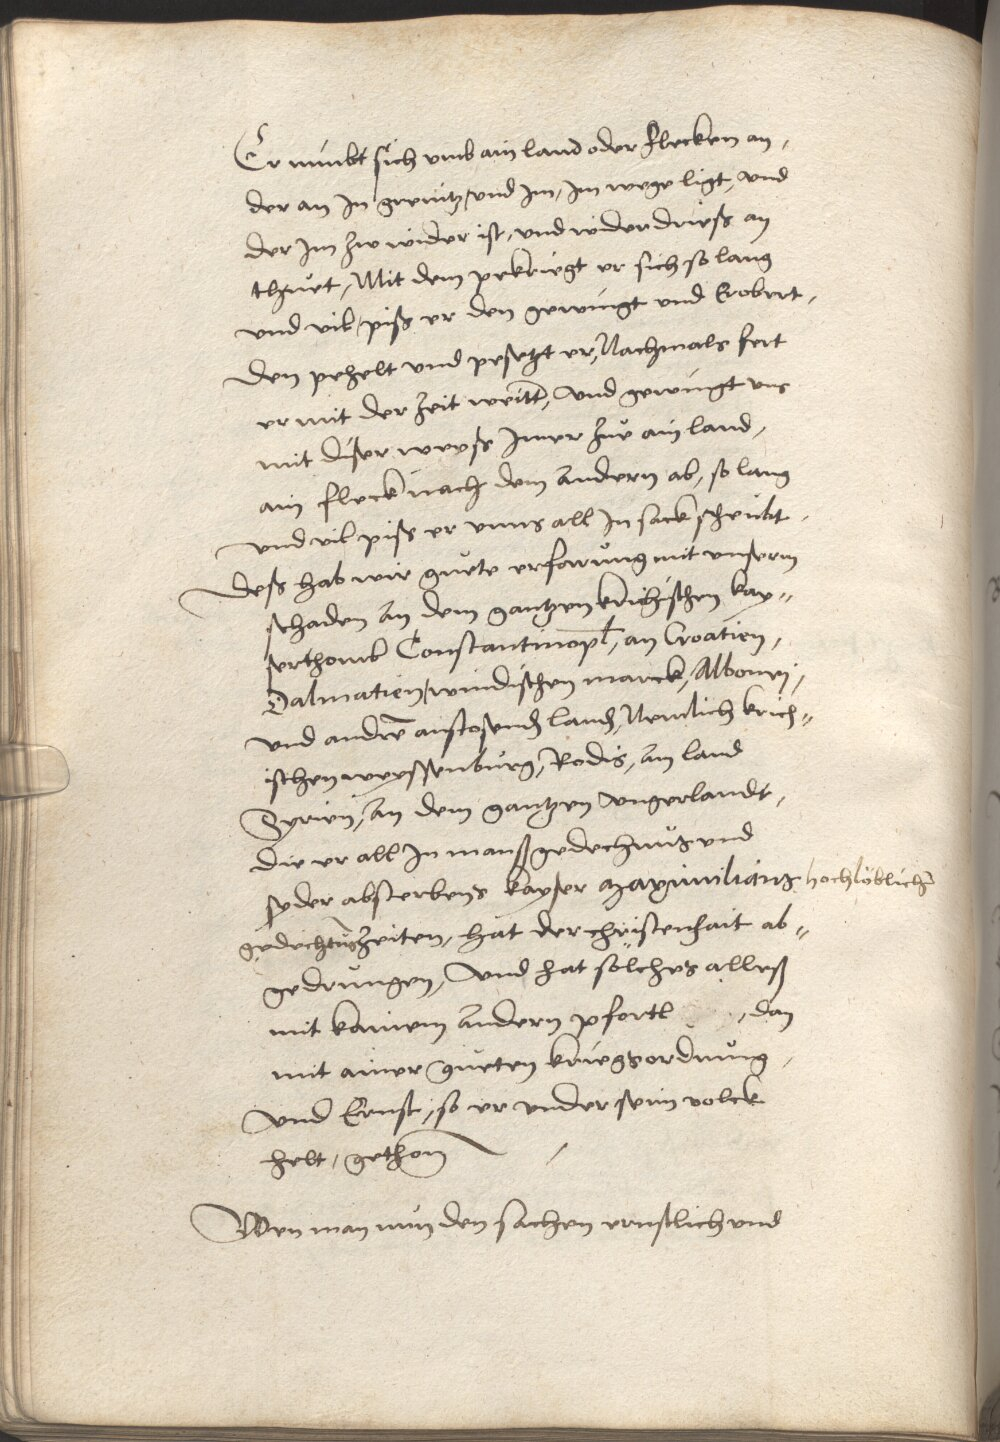 Er nimbt sich umb ain land oder flecken an,
der an In grenitz, und Im, Im wege ligt, und
der Im zw wider ist, und widerdriess an
thuet, Mit dem pekriegt er sich so lang
und vil, piss er den gewingt und Erobert,
Den pehelt und pesetzt er, Nachmals fert
er mit der zeit weitter, und gewingt uns
mit diser weyss Imer zue ain land,
ain fleck nach dem andern ab, so lang
und vil piss er unns all In sack scheubt.
Dess hab wir guete erfarung mit unserm
schaden an dem gantzen krichischen kay„
serthomb Constantinopl, an Croatien,
Dalmatien, windischen marck, Albonej,
und andre anstosend land, Nemlich krich„
ischen weyssenburg, Rodis, am land
Syrien, an dem gantzen ungerlandt,
die er all In mansgedechnus und
syder absterbens kayser maximilians hochlöblicher
gedechtnus zeiten, hat der christenhait ab„
gedrungen, Und hat solches alless
mit kainem andern pfortl , dan
mit ainer gueten kriegsordnung
und Ernst, so er under seim volck
helt, gethon /
Wen man nun den sachen ernstlich und